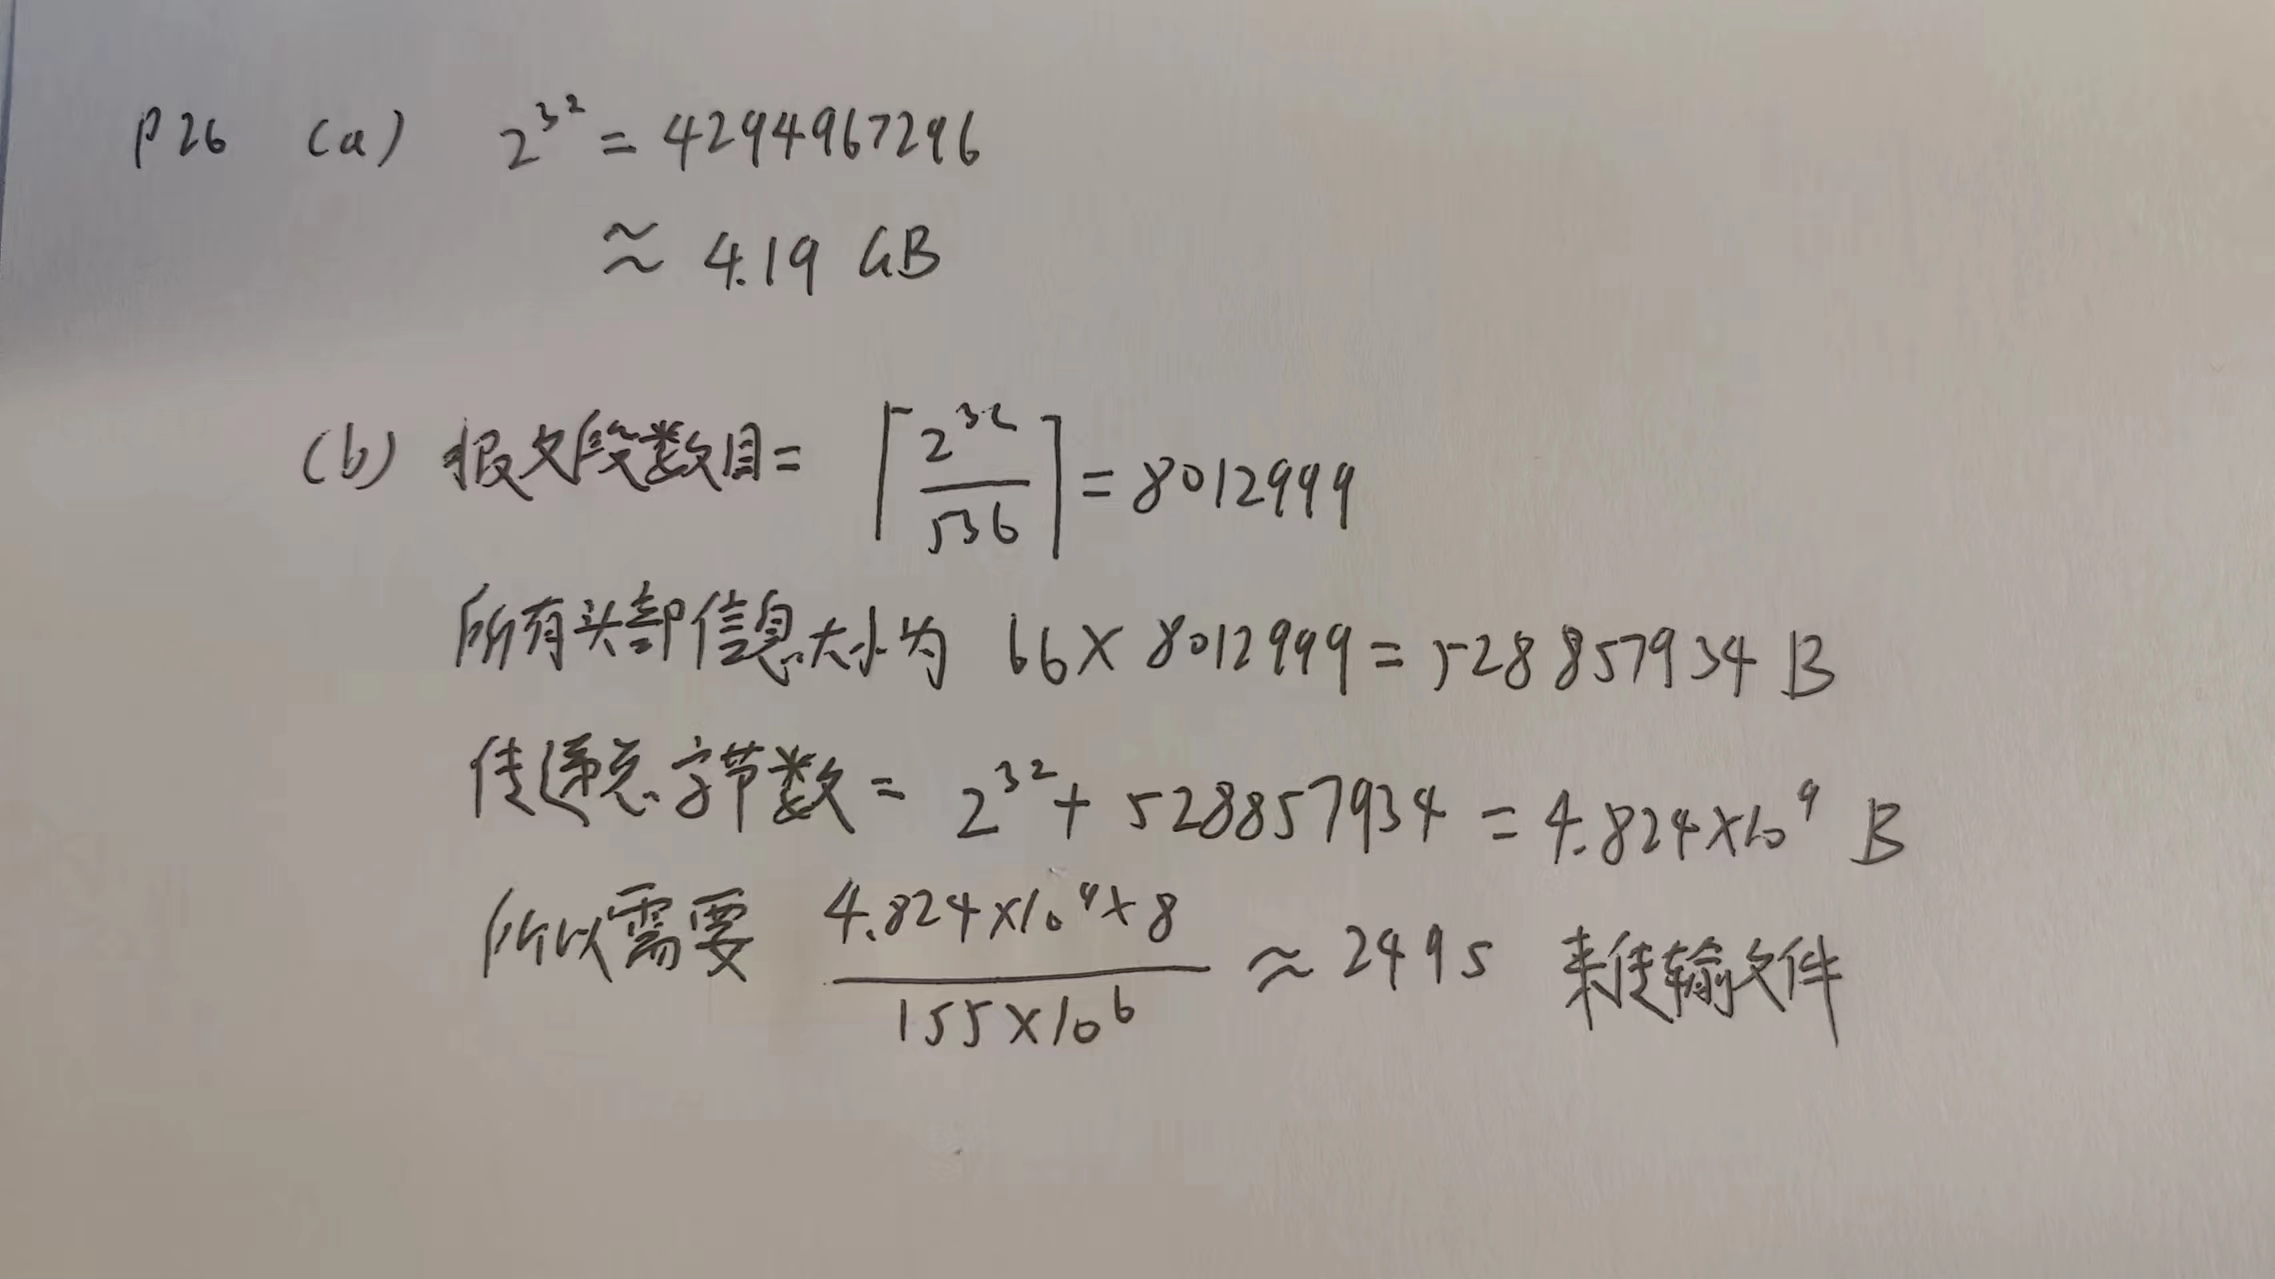 P26 (a) 2^32 = 4294967296
≈ 4.19 GB
(b) 报文段数目 = ⌈2^32/536⌉ = 8012999
所有头部信息大小为 66 × 8012999 = 528857934 B
传递总字节数 = 2^32 + 528857934 = 4.824×10^9 B
所以需要 4.824×10^9×8/155×10^6 ≈ 249s 来传输文件